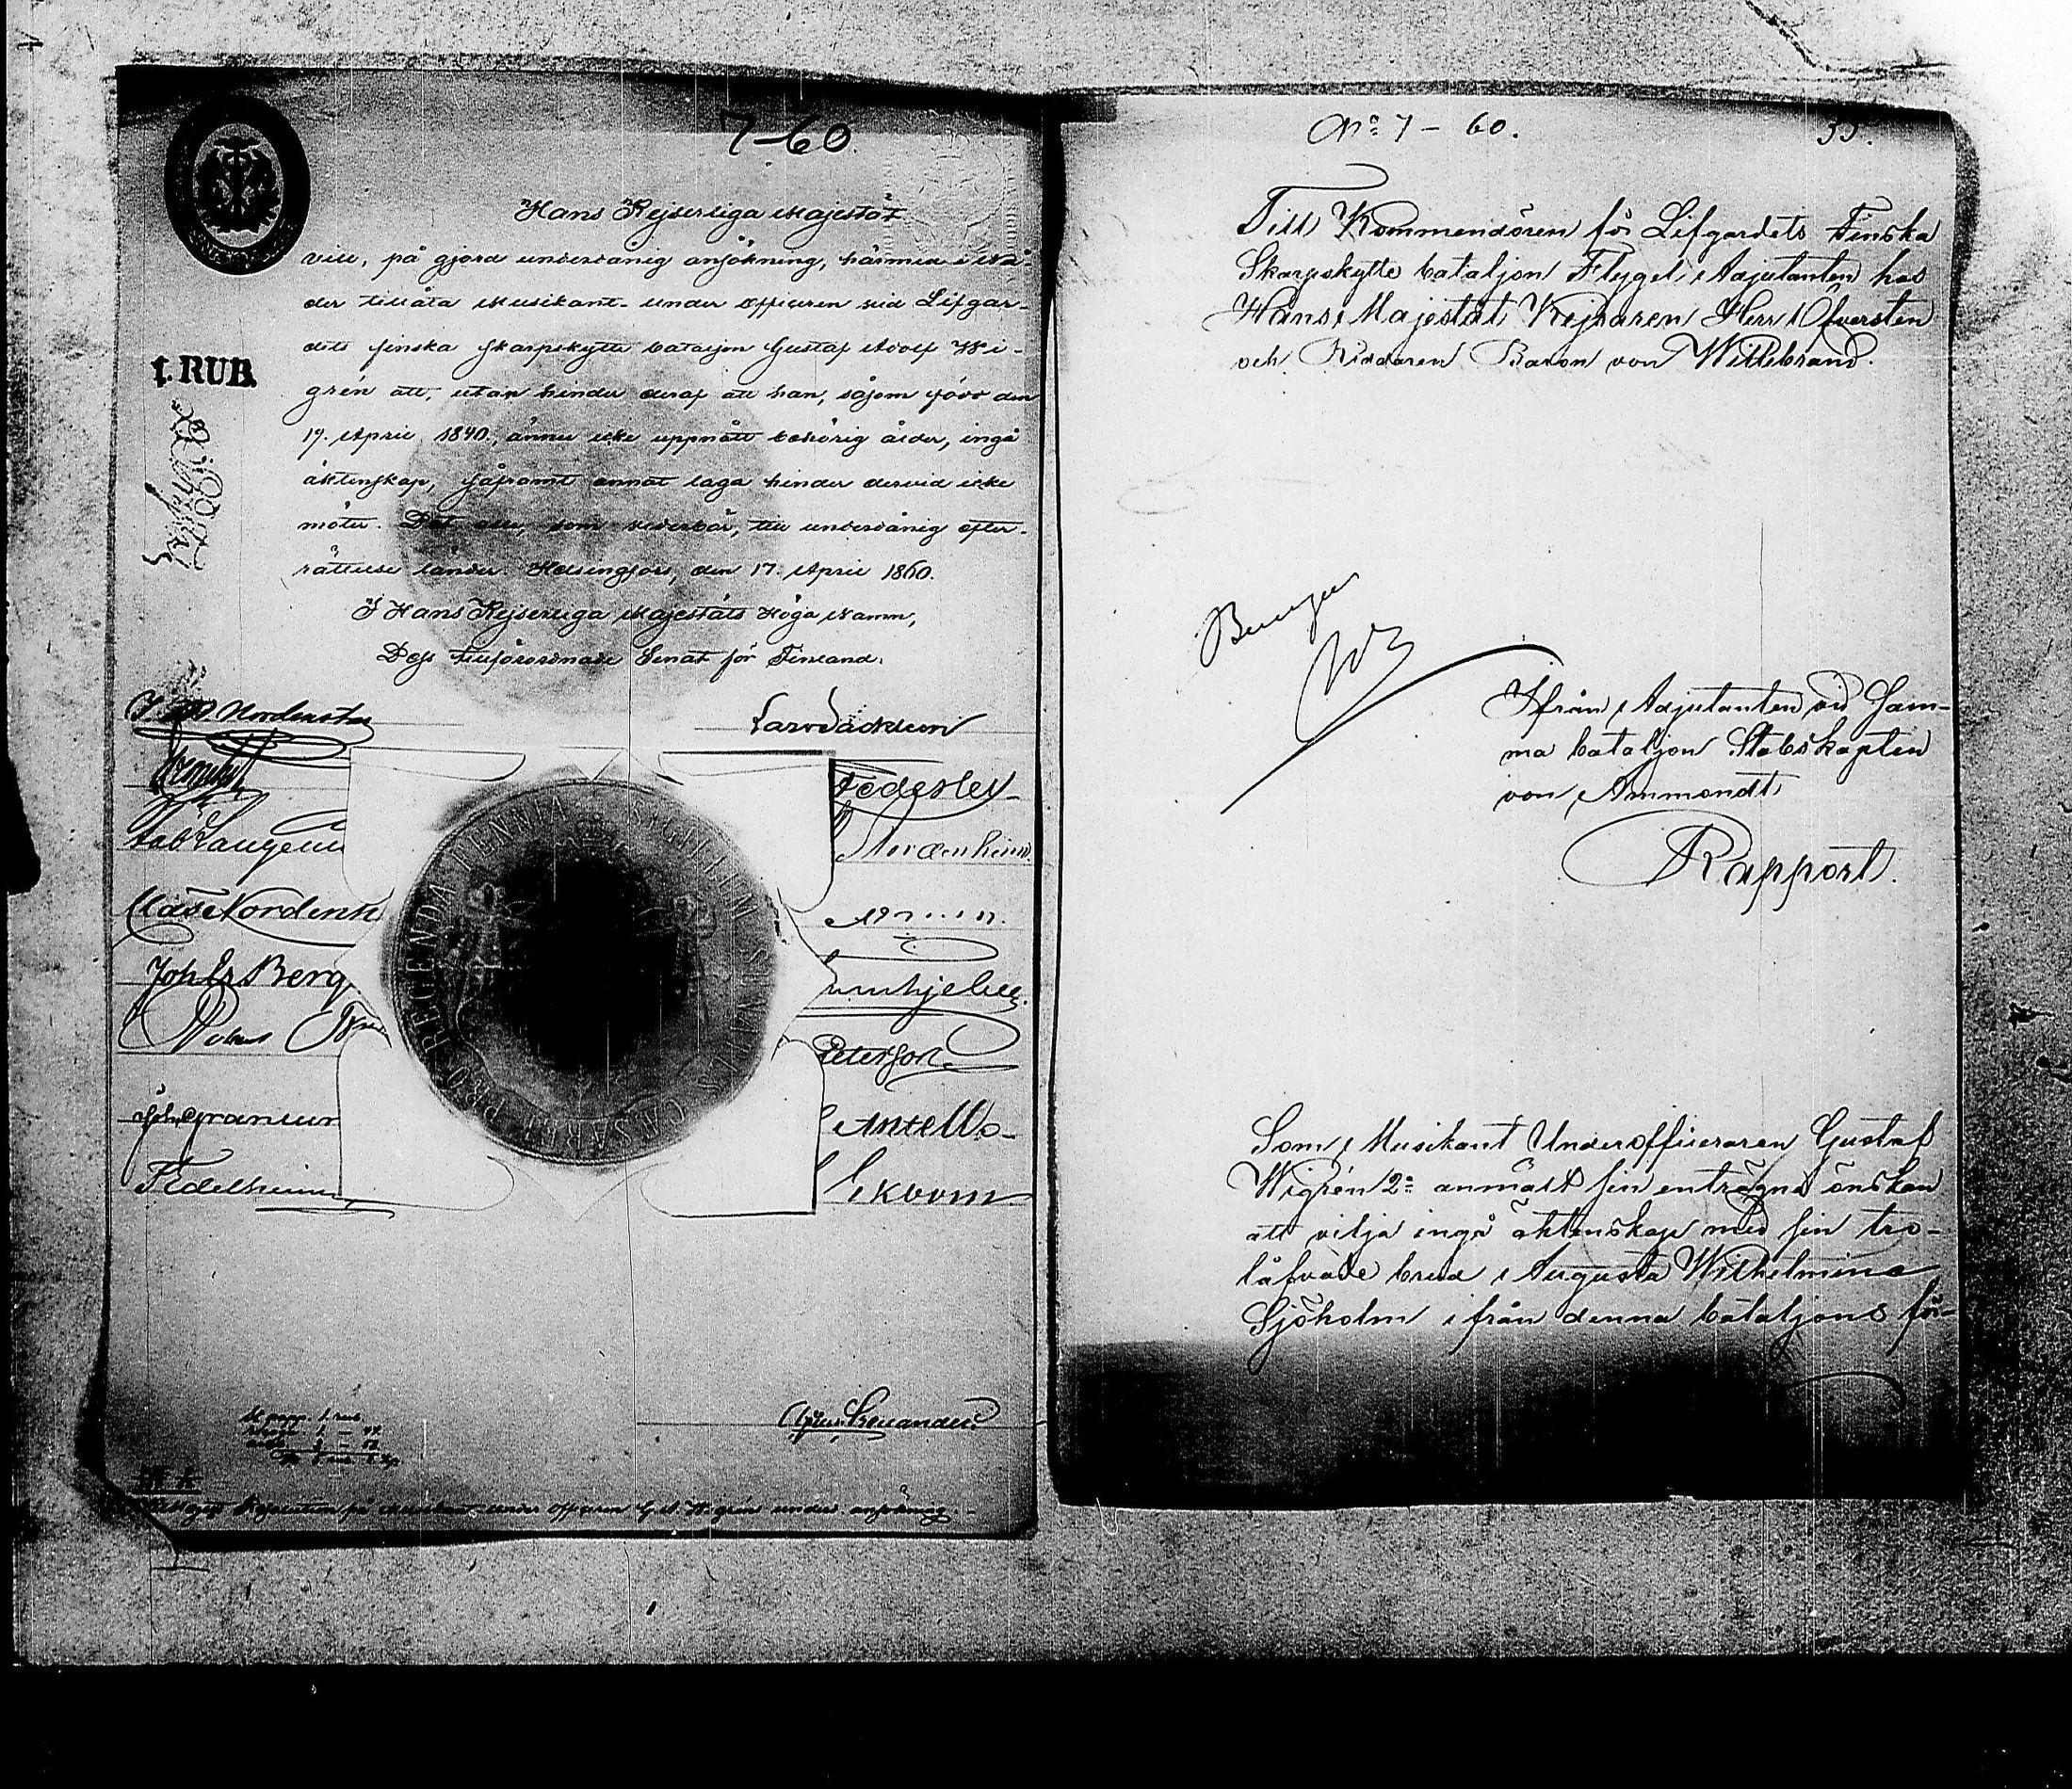 7-60.
Hans Kejserliga Majestät
vill, på gjord underdånig ansökning, härmed i Nå-
der tillåta Musikant-under officeren vid Lifgar-
dets finska Skarpskytte bataljon Gustaf Adolf Wi-
grén att, utan hinder deraf att han, såsom född den
19. April 1840, ännu icke uppnått behörig ålder, ingå
äktenskap, såframt annat laga hinder dervid icke
möter. Det alle, som vederbör, till underdånig efter-
rättelse länder. Helsingfors, den 17. April 1860.
I Hans Kejserliga Majestäts Höga Namn,
Dess tillförordnade Senat för Finland:
1. RUB.
Nordenstam
Lars Sackleen
Federley
Johls Berg
Peterson
Antell
Joh. Granlund
Ekbom
SIGILLUM SENATUS CÆSAREI PRO REGENDA FENNIA
under officeren G. A. Wigrén under. ansökning
No 7 - 60.
Till Kommendören för Lifgardets Finska
Skarpskytte bataljon Flygel Adjutanten hos
Hans Majestät Kejsaren Herr Öfversten
och Riddaren Baron von Willebrand.
Ifrån Adjutanten vid Sam-
ma bataljon Stabskapten
von Ammondt
Rapport.
Som Musikant Underofficeraren Gustaf
Wigrén 2:a anmält sin enträgna önskan
att vilja ingå äktenskap med sin tro-
låfvade brud Augusta Wilhelmina
Sjöholm ifrån denna bataljons för-